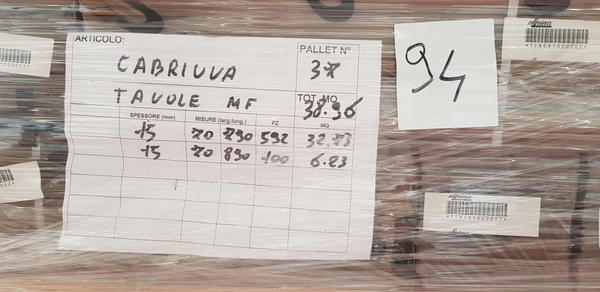 ARTICOLO:
PALLET N°
CABRIUVA
37
TAVOLE MF
TOT. MQ
38.96
SPESSORE (mm) MISURE (larg.lung.) PZ MQ
15 70 790 592 32.73
15 70 890 100 6.23
94
alpina
alpina